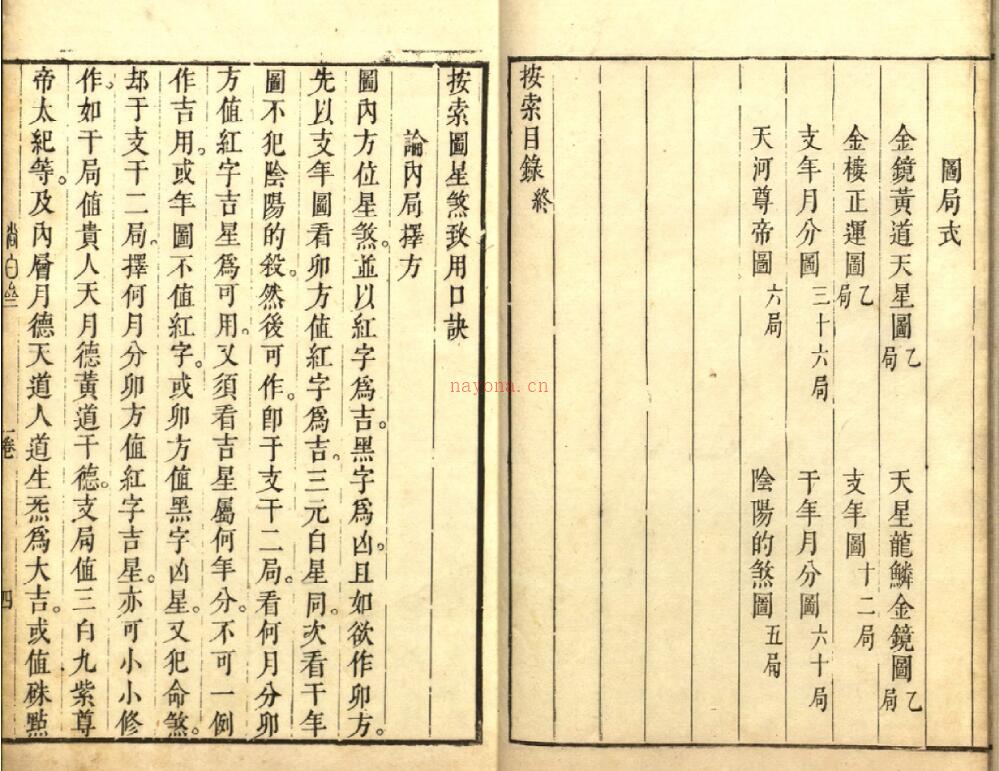 圖局式
金鏡黃道天星圖乙局 天星龍鱗金鏡圖乙局
金樓正運圖乙局 支年圖十二局
支年月分圖三十六局 干年月分圖六十局
天河尊帝圖六局 陰陽的煞圖五局
按索目錄終
按索圖星煞致用口訣
論內局擇方
圖內方位星煞。並以紅字爲吉。黑字爲凶。且如欲作卯方。
先以支年圖看卯方值紅字爲吉。三元白星同。次看干年
圖不犯陰陽的殺。然後可作。卽于支干二局。看何月分卯
方值紅字吉星爲可用。又須看吉星屬何年分。不可一例
作吉用。或年圖不值紅字。或卯方值黑字凶星。又犯命煞。
却于支干二局。擇何月分卯方值紅字吉星。亦可小小修
作。如干局值貴人天月德黃道干德。支局值三白九紫尊
帝太紀等。及內層月德天道人道生炁爲大吉。或值硃㸃
卷
四
nayona.cn